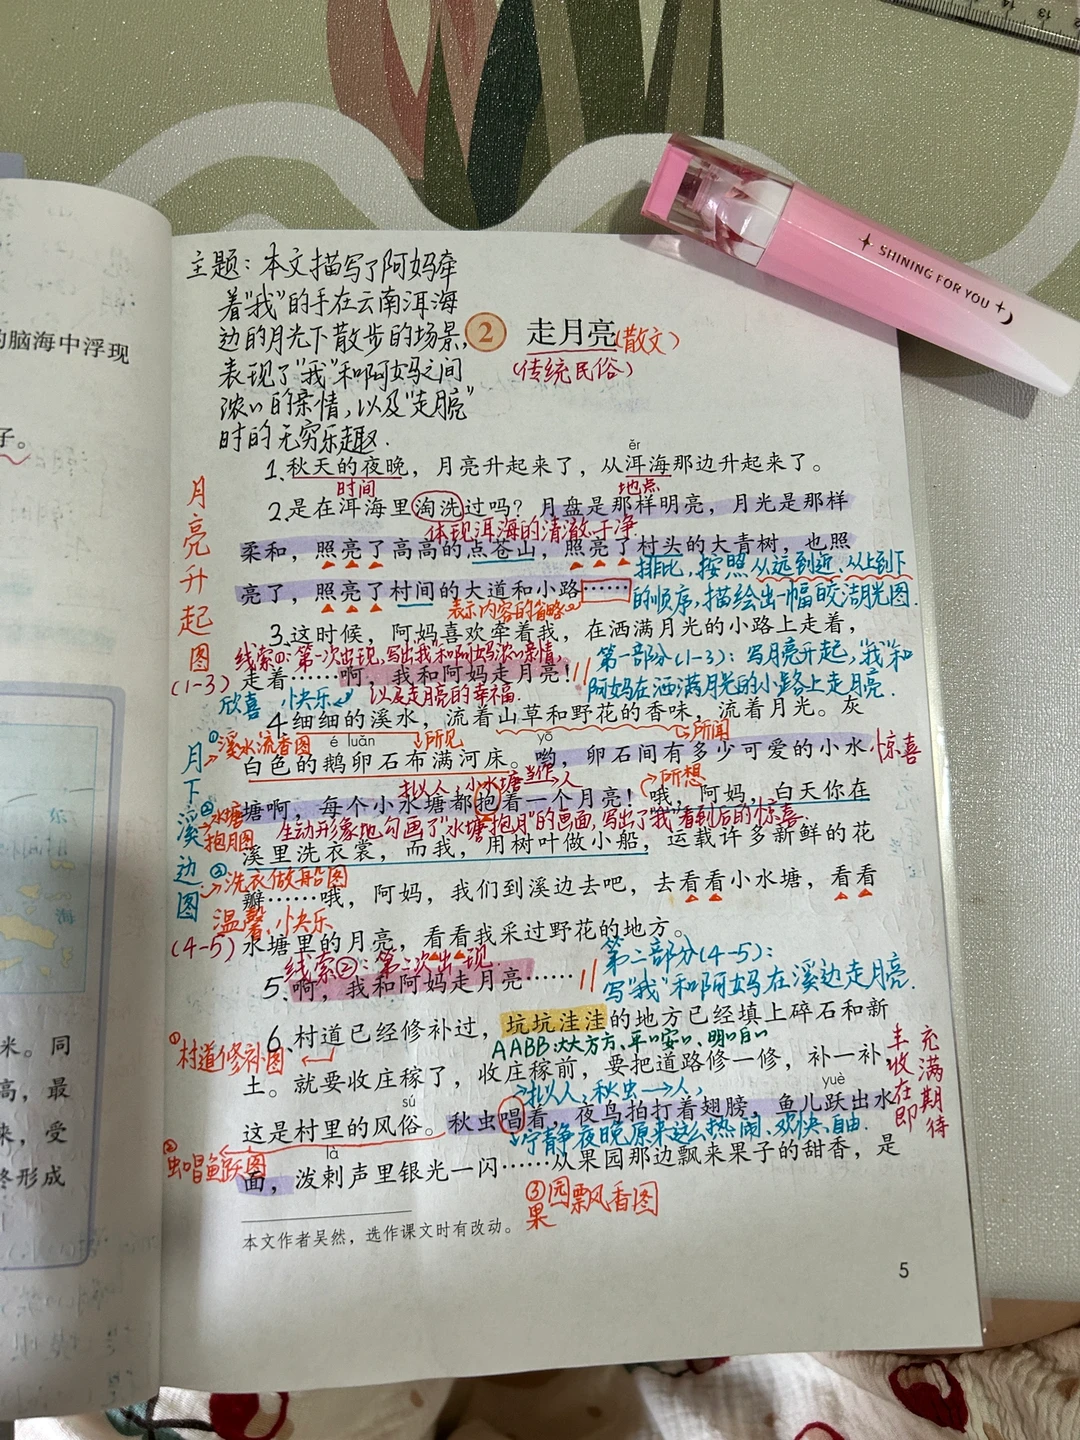 SHINING FOR YOU
的脑海中浮现
子。
米。同
高，最
来，受
终形成
主题：本文描写了阿妈牵
着“我”的手在云南洱海
边的月光下散步的场景，
表现了“我”和阿妈之间
浓浓的亲情，以及“走月亮”
时的无穷乐趣.
2 走月亮(散文)
(传统民俗)
ěr
1、秋天的夜晚，月亮升起来了，从洱海那边升起来了。
时间 地点
2、是在洱海里淘洗过吗？月盘是那样明亮，月光是那样
体现洱海的清澈、干净
柔和，照亮了高高的点苍山，照亮了村头的大青树，也照
排比，按照从远到近、从上到下
亮了，照亮了村间的大道和小路……
的顺序，描绘出一幅皎洁月光图.
表示内容的省略
3、这时候，阿妈喜欢牵着我，在洒满月光的小路上走着，
线索①：第一次出现，写出我和阿妈浓浓亲情，
走着……啊，我和阿妈走月亮！
以及走月亮的幸福.
第一部分(1-3)：写月亮升起，“我”和
阿妈在洒满月光的小路上走月亮.
月亮升起图
(1-3)
欣喜 快乐
4、细细的溪水，流着山草和野花的香味，流着月光。灰
①溪水流香图
所见
所闻
é luǎn yō
白色的鹅卵石布满河床。哟，卵石间有多少可爱的小水
惊喜
拟人：小水塘当作人
所想
塘啊，每个小水塘都抱着一个月亮！哦，阿妈，白天你在
②水塘抱月图
生动形象地勾画了“水塘抱月”的画面，写出了“我”看到后的惊喜.
溪里洗衣裳，而我，用树叶做小船，运载许多新鲜的花
③洗衣做船图
瓣……哦，阿妈，我们到溪边去吧，去看看小水塘，看看
温馨、快乐
水塘里的月亮，看看我采过野花的地方。
月下溪边图
(4-5)
线索②：第二次出现.
5、啊，我和阿妈走月亮……
第二部分(4-5)：
写“我”和阿妈在溪边走月亮.
6、村道已经修补过，坑坑洼洼的地方已经填上碎石和新
①村道修补图
AABB：大大方方、平平安安、明明白白
土。就要收庄稼了，收庄稼前，要把道路修一修，补一补，
丰收在即
充满期待
拟人：秋虫→人，
sú yuè
这是村里的风俗。秋虫唱着，夜鸟拍打着翅膀，鱼儿跃出水
宁静夜晚原来这么热闹、欢快、自由.
②虫唱鱼跃图
là
面，泼剌声里银光一闪……从果园那边飘来果子的甜香，是
③果园飘香图
本文作者吴然，选作课文时有改动。
5